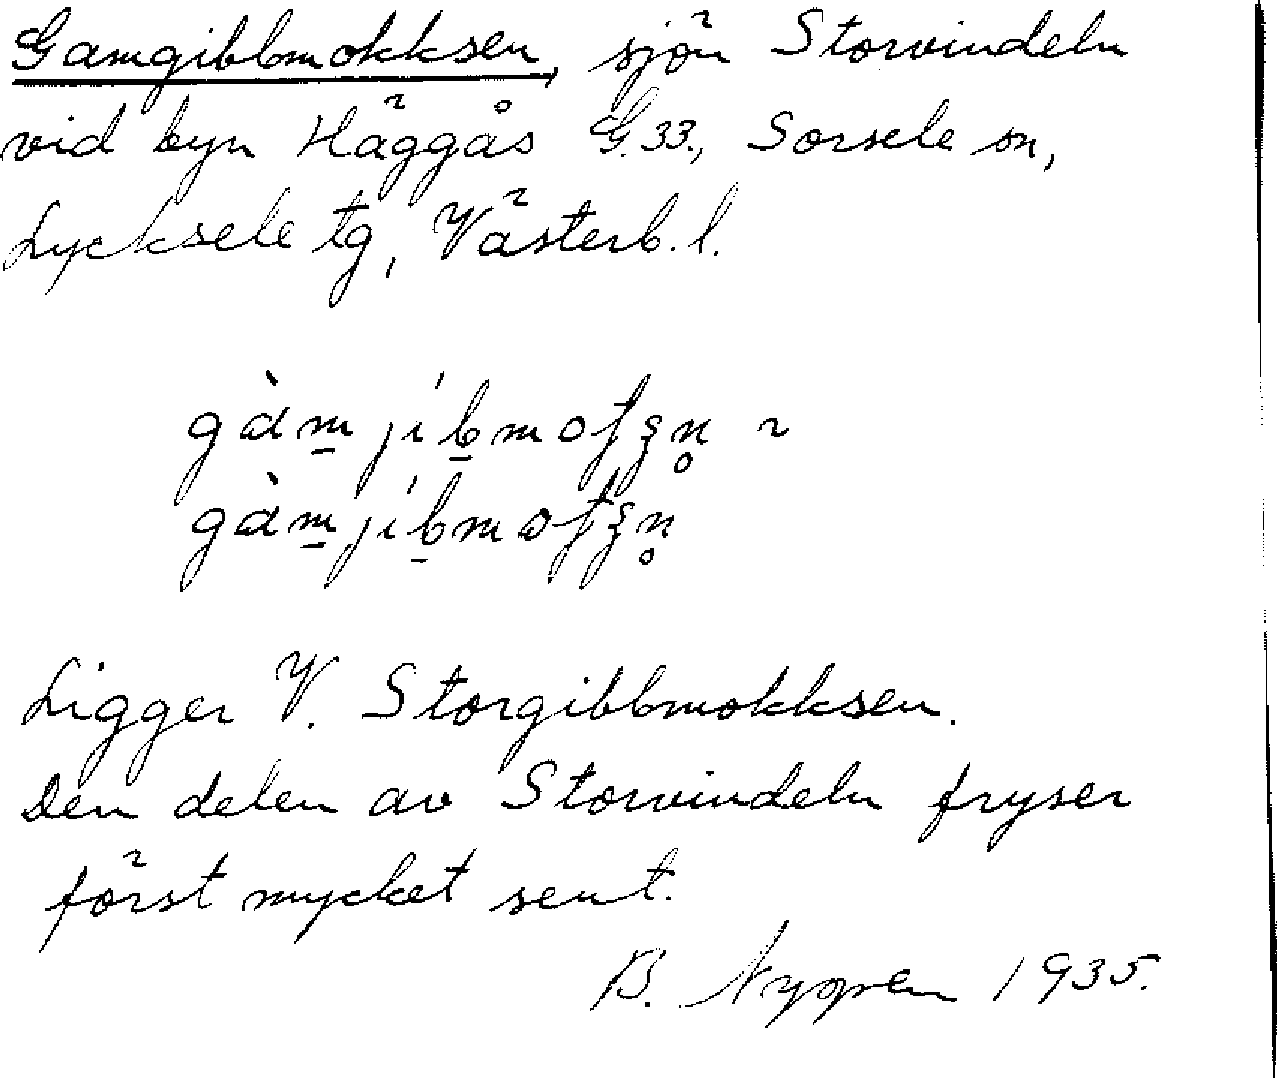 Gamgibbmokksen, sjön Storvindeln
vid byn Häggås G.33., Sorsele sn,
Lycksele tg, Västerb. l.
Ligger V. Storgibbmokksen.
Den delen av Storvindeln fryser
först mycket sent.
B. 1935.